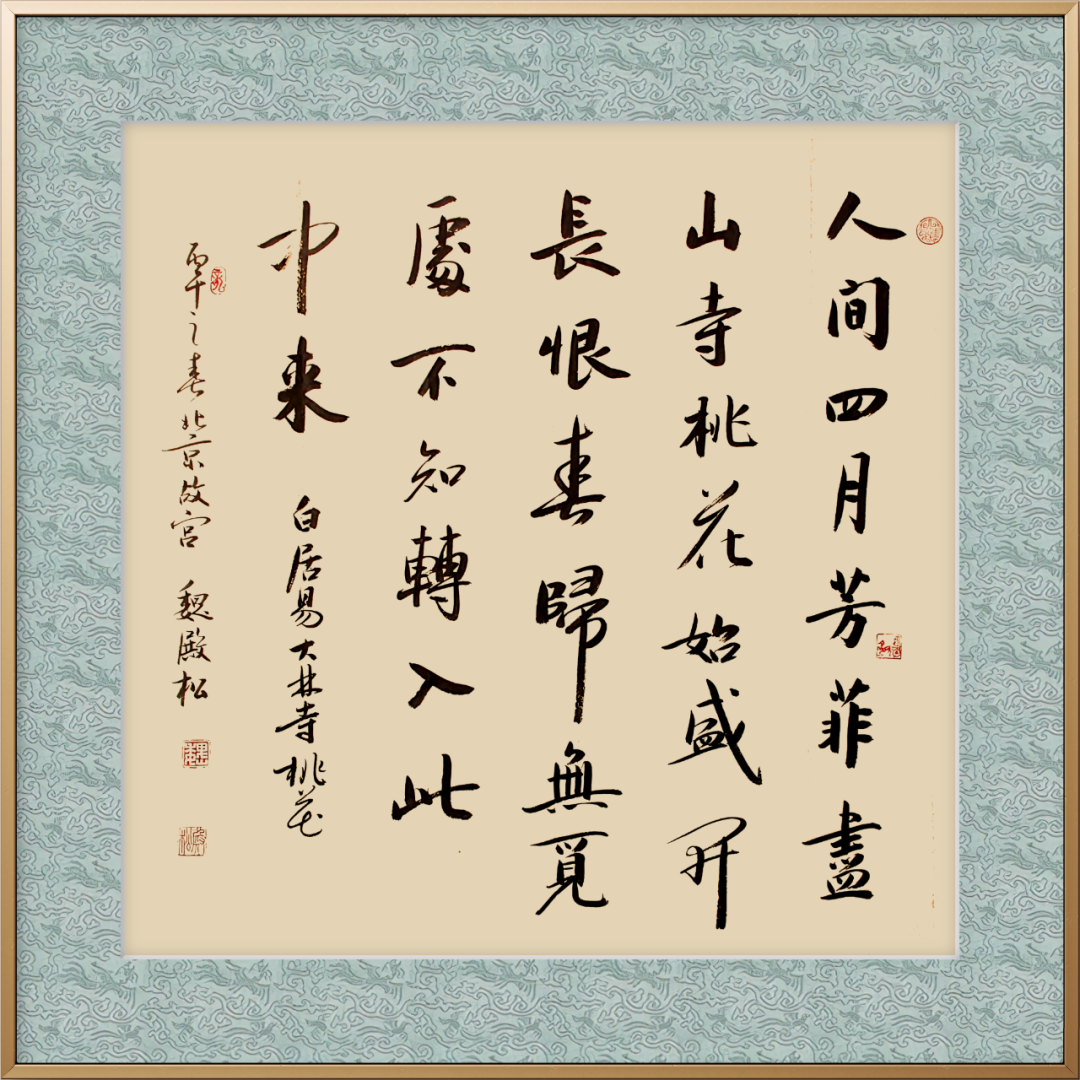 人间四月芳菲盡
山寺桃花始盛開
長恨春歸無覓
處不知轉入此
中来 白居易大林寺桃花
丙午之春北京故宫 魏殿松